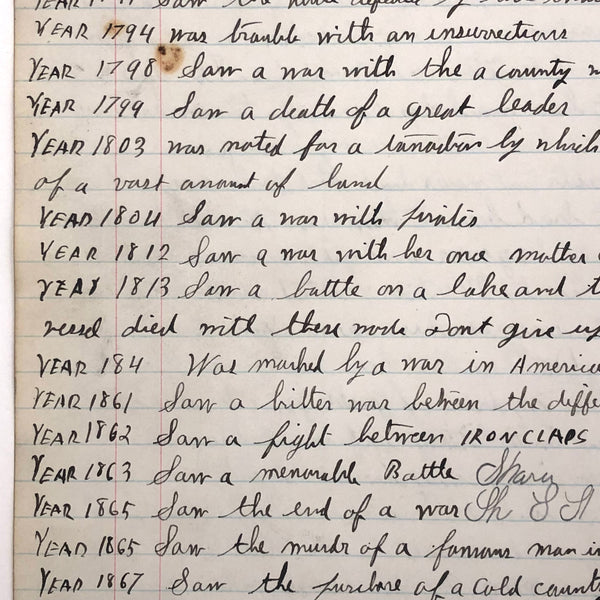 YEAR 1794 was trouble with an insurrections
YEAR 1798 Saw a war with the a county
YEAR 1799 Saw a death of a great leader
YEAR 1803 was noted for a by which
of a vast amount of land
YEAR 1804 Saw a war with pirates
YEAR 1812 Saw a war with her once mother
YEAR 1813 Saw a battle on a lake and
vessel died with these words Dont give up
YEAR 184 Was marked by a war in America
YEAR 1861 Saw a bitter war between the diffe
YEAR 1862 Saw a fight between IRONCLADS
YEAR 1863 Saw a memorable Battle
YEAR 1865 Saw the end of a war
YEAR 1865 Saw the murdr of a famous man in
YEAR 1867 Saw the purchase of a Cold count